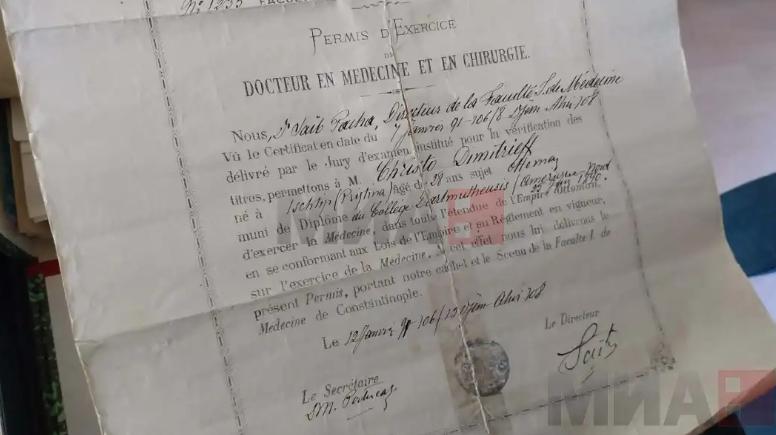 Nº 1233 FACUL
PERMIS D'EXERCICE
DE
DOCTEUR EN MEDECINE ET EN CHIRURGIE.
Nous, Dr Saib Pacha, Directeur de la Faculté I. de Médecine
Vu le Certificat en date du 7 Janvier 91-106/8
délivré par le Jury d'examen institué pour la vérification des
titres, permettons à M. Christo Dimitrieff
né à Ischtip (Pristina) âgé de 29 ans sujet Ottoman
muni de Diplôme du Collège Dartmuthensis (Amérique Nord 1890.
d'exercer la Médecine dans toute l'étendue de l'Empire Ottoman,
en se conformant aux Lois de l'Empire et au Règlement en vigueur,
sur l'exercice de la Médecine. A cet effet nous lui délivrons le
présent Permis, portant notre cachet et le Sceau de la Faculté I. de
Médecine de Constantinople.
Le 12 Janvier 91-106/
Le Directeur
Saib
Le Secrétaire
МИА
МИА